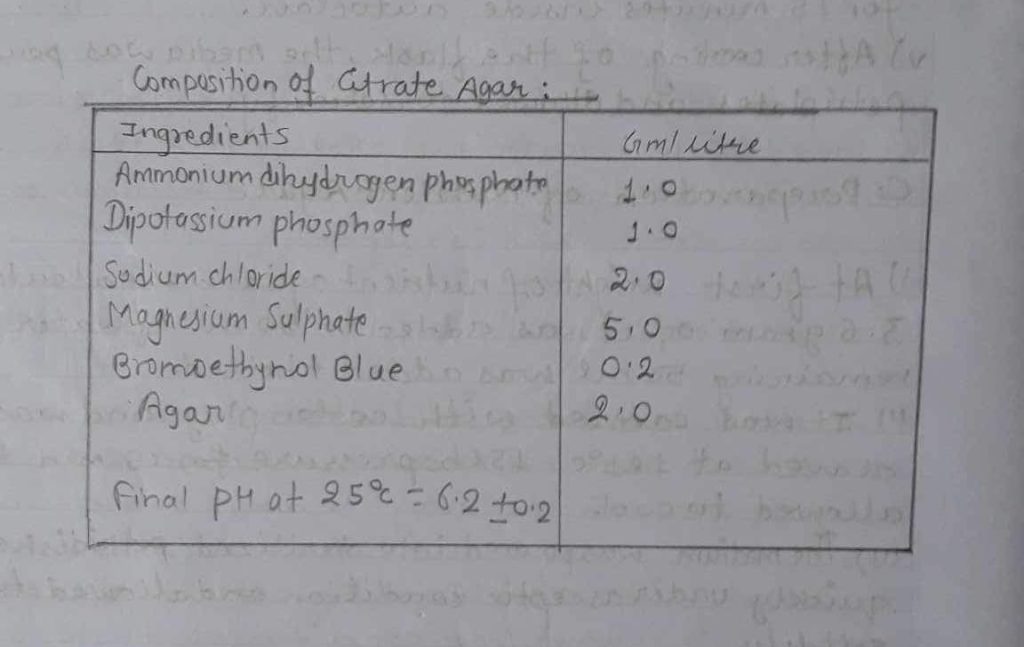 Composition of Citrate Agar :
Ingredients Gm/ Litre
Ammonium dihydrogen phosphate 1.0
Dipotassium phosphate 1.0
Sodium chloride 2.0
Magnesium Sulphate 5.0
Bromoethynol Blue 0.2
Agar 2.0
Final pH at 25°C = 6.2 ±0.2